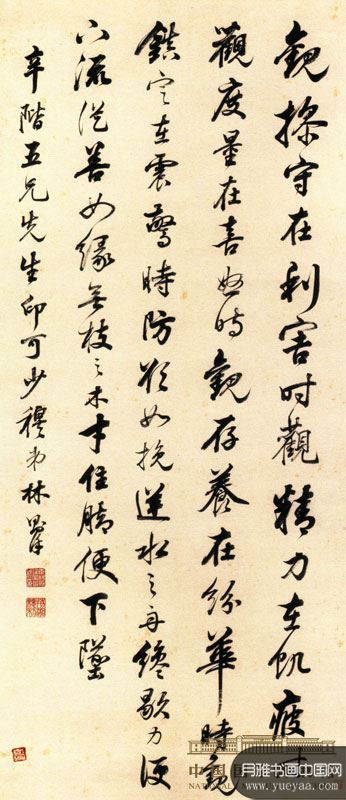 觀操守在利害时觀精力在飢疲时
觀度量在喜怒时觀存養在紛華時觀
鎮定在震驚時防欲如挽逆水之舟纔歇力便
下流從善如緣無枝之木才住腳便下墜
辛階五兄先生印可少穆弟林則徐
月雅书画中国网
www.yueyaa.com